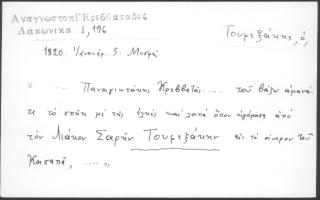 Αναγνωστοπ Γ Κρεββαταδες
Λακωνικα 1, 196
Τουφεξάκης, ὁ,
1820. Ἰανουαρ. 5. Μυσρᾶ
« ..... Παναγιωτάκης Κρεββατᾶς ..... τοῦ βάζω ἀμανά-
τι τὸ σπῆτι μὲ τὲς ἐληὲς καὶ ὅπου ἠγόρασα ἀπὸ
τὸν Λιάκον Σαρῆν Τουφεξάκην εἰς τὸ σύνορον τοῦ
Κασαπᾶ, ..... »